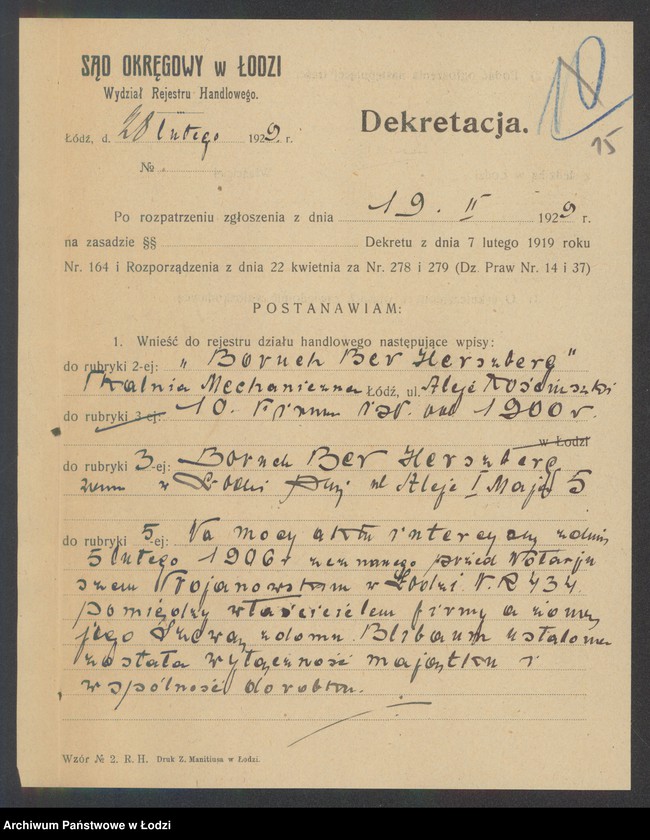 SĄD OKRĘGOWY w ŁODZI
Wydział Rejestru Handlowego.
Łódź, d. 28 lutego 1929. r.
№
Dekretacja.
10
15
Po rozpatrzeniu zgłoszenia z dnia 19. II 1929 r.
na zasadzie §§ Dekretu z dnia 7 lutego 1919 roku
Nr. 164 i Rozporządzenia z dnia 22 kwietnia za Nr. 278 i 279 (Dz. Praw Nr. 14 i 37)
POSTANAWIAM:
1. Wnieść do rejestru działu handlowego następujące wpisy:
do rubryki 2-ej: „Boruch Ber Herszberg"
Tkalnia Mechaniczna Łódź, ul. Aleje Kościuszki
do rubryki 3-ej: 10. Firma istn. od 1900 r.
w Łodzi
do rubryki 3-ej: Boruch Ber Herszberg
zam w Łodzi przy ul Aleje I Maja 5
do rubryki 5-ej: Na mocy aktu intercyzy z dnia
5 lutego 1906 r zeznanego przed Notarju
szem Trojanowskim w Łodzi N.R 434
pomiędzy właścicielem firmy a żoną
jego z domu Blibaum ustalona
została wyłączność majątku i
wspólność dorobku.
Wzór № 2. R. H. Druk Z. Manitiusa w Łodzi.
Archiwum Państwowe w Łodzi